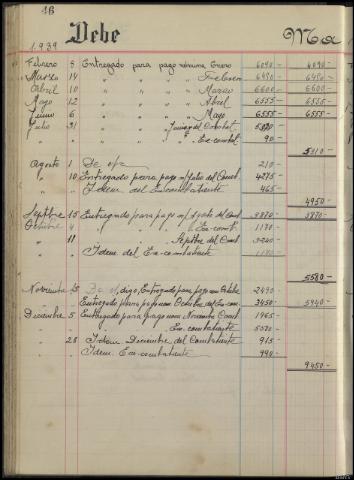 16
1.939 Debe Ma
Febrero 8 Entregado para pago nómina Enero 6090- 6090-
Marzo 14 " " " " Febrero 6490- 6490-
Abril 10 " " " " Marzo 6600- 6600-
Mayo 12 " " " " Abril 6555- 6555-
Junio 6 " " " " Mayo 6555- 6555-
Julio 31 " " " Junio del Combat.
" " " " Ex-combat. 90-
Agosto 1 De 210-
" 10 Entregado para pago n/ Julio del Comb. 4275-
" " Idem del Ex-combatiente 465-
4950-
Septbre 15 Entregado para pago n/ Agosto del Comb. 3870- 3870-
Octubre 4 " " " " Ex-comb. 1170-
" 11 " " " Septbre del Comb. 3240-
" " Idem del Ex-combatiente 1170-
5580-
Noviembre 15 digo, Entregado para pago nom Octubre 2490-
" " Entregado para pago nom Octubre del Ex-com. 3450- 5940-
Diciembre 5 Entregado para pago nom Noviembre Comb. 1965-
" " " " " Ex-combatiente
" 28 Idem Diciembre del Combatiente 915-
" " Idem Ex-combatiente 990-
9450-